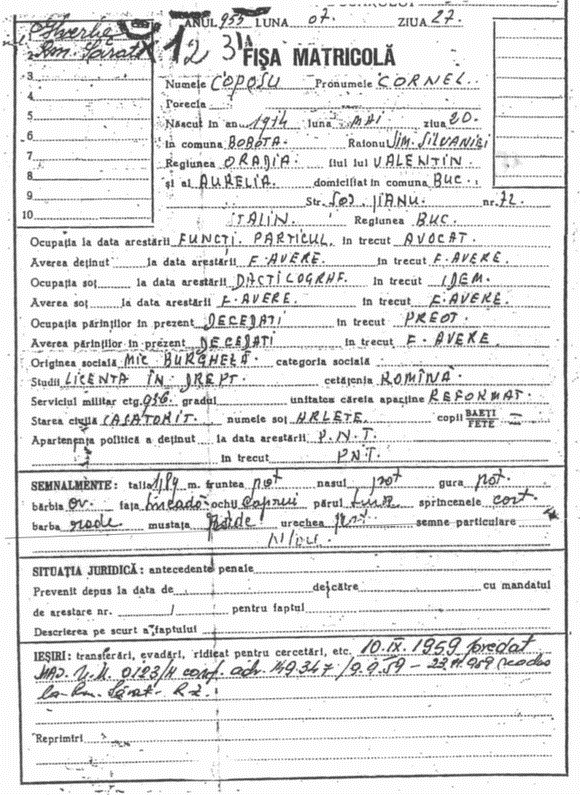 ANUL 955 LUNA 07. ZIUA 27.
Gherla
Rm. Sărat
1 2 3
FIŞA MATRICOLĂ
3
4
5
6
7
8
9
10
Numele COPOSU Pronumele CORNEL.
Porecla
Născut in an. 1914 luna MAI ziua 20.
in comuna BOBOTA. Raionul ŞIM. SILVANIEI
Regiunea ORADIA. fiul lui VALENTIN.
şi al AURELIA. domiciliat in comuna BUC.
Str. ŞOS JIANU. nr. 72.
STALIN. Regiunea BUC.
Ocupaţia la data arestării FUNCŢ. PARTICUL. in trecut AVOCAT.
Averea deţinut la data arestării F. AVERE. in trecut F. AVERE.
Ocupaţia soţ la data arestării DACTILOGRAF. in trecut IDEM.
Averea soţ la data arestării F. AVERE. in trecut F. AVERE.
Ocupaţia părinţilor in prezent DECEDAŢI in trecut PREOT.
Averea părinţilor in prezent DECEDAŢI in trecut F. AVERE.
Originea socială MIC BURGHEZĂ. categoria socială
Studii LICENTA ÎN DREPT. cetăţenia ROMÎNĂ.
Serviciul militar ctg. 936. gradul unitatea căreia aparţine REFORMAT.
Starea civilă CASATORIT. numele soţ ARLETE. copii BAEŢI FETE =
Apartenenţa politică a deţinut la data arestării P.N.T.
in trecut PNT.
SEMNALMENTE: talia 1,89 m. fruntea pot nasul pot gura pot.
bărbia ov. faţa smeadă ochii caprui părul sprincenele cast.
barba rade mustaţa Rade urechea pot. semne particulare
N/are.
SITUAŢIA JURIDICĂ: antecedente penale
Prevenit depus la data de de către cu mandatul
de arestare nr. / pentru faptul
Descrierea pe scurt a faptului
IEŞIRI: transferări, evadări, ridicat pentru cercetări, etc. 10.IX.1959 predat
MAI. U.M. 0123/H conf. adr. 149.347/9.9.59 - 959 readus
la Rm. Sărat.
Reprimiri